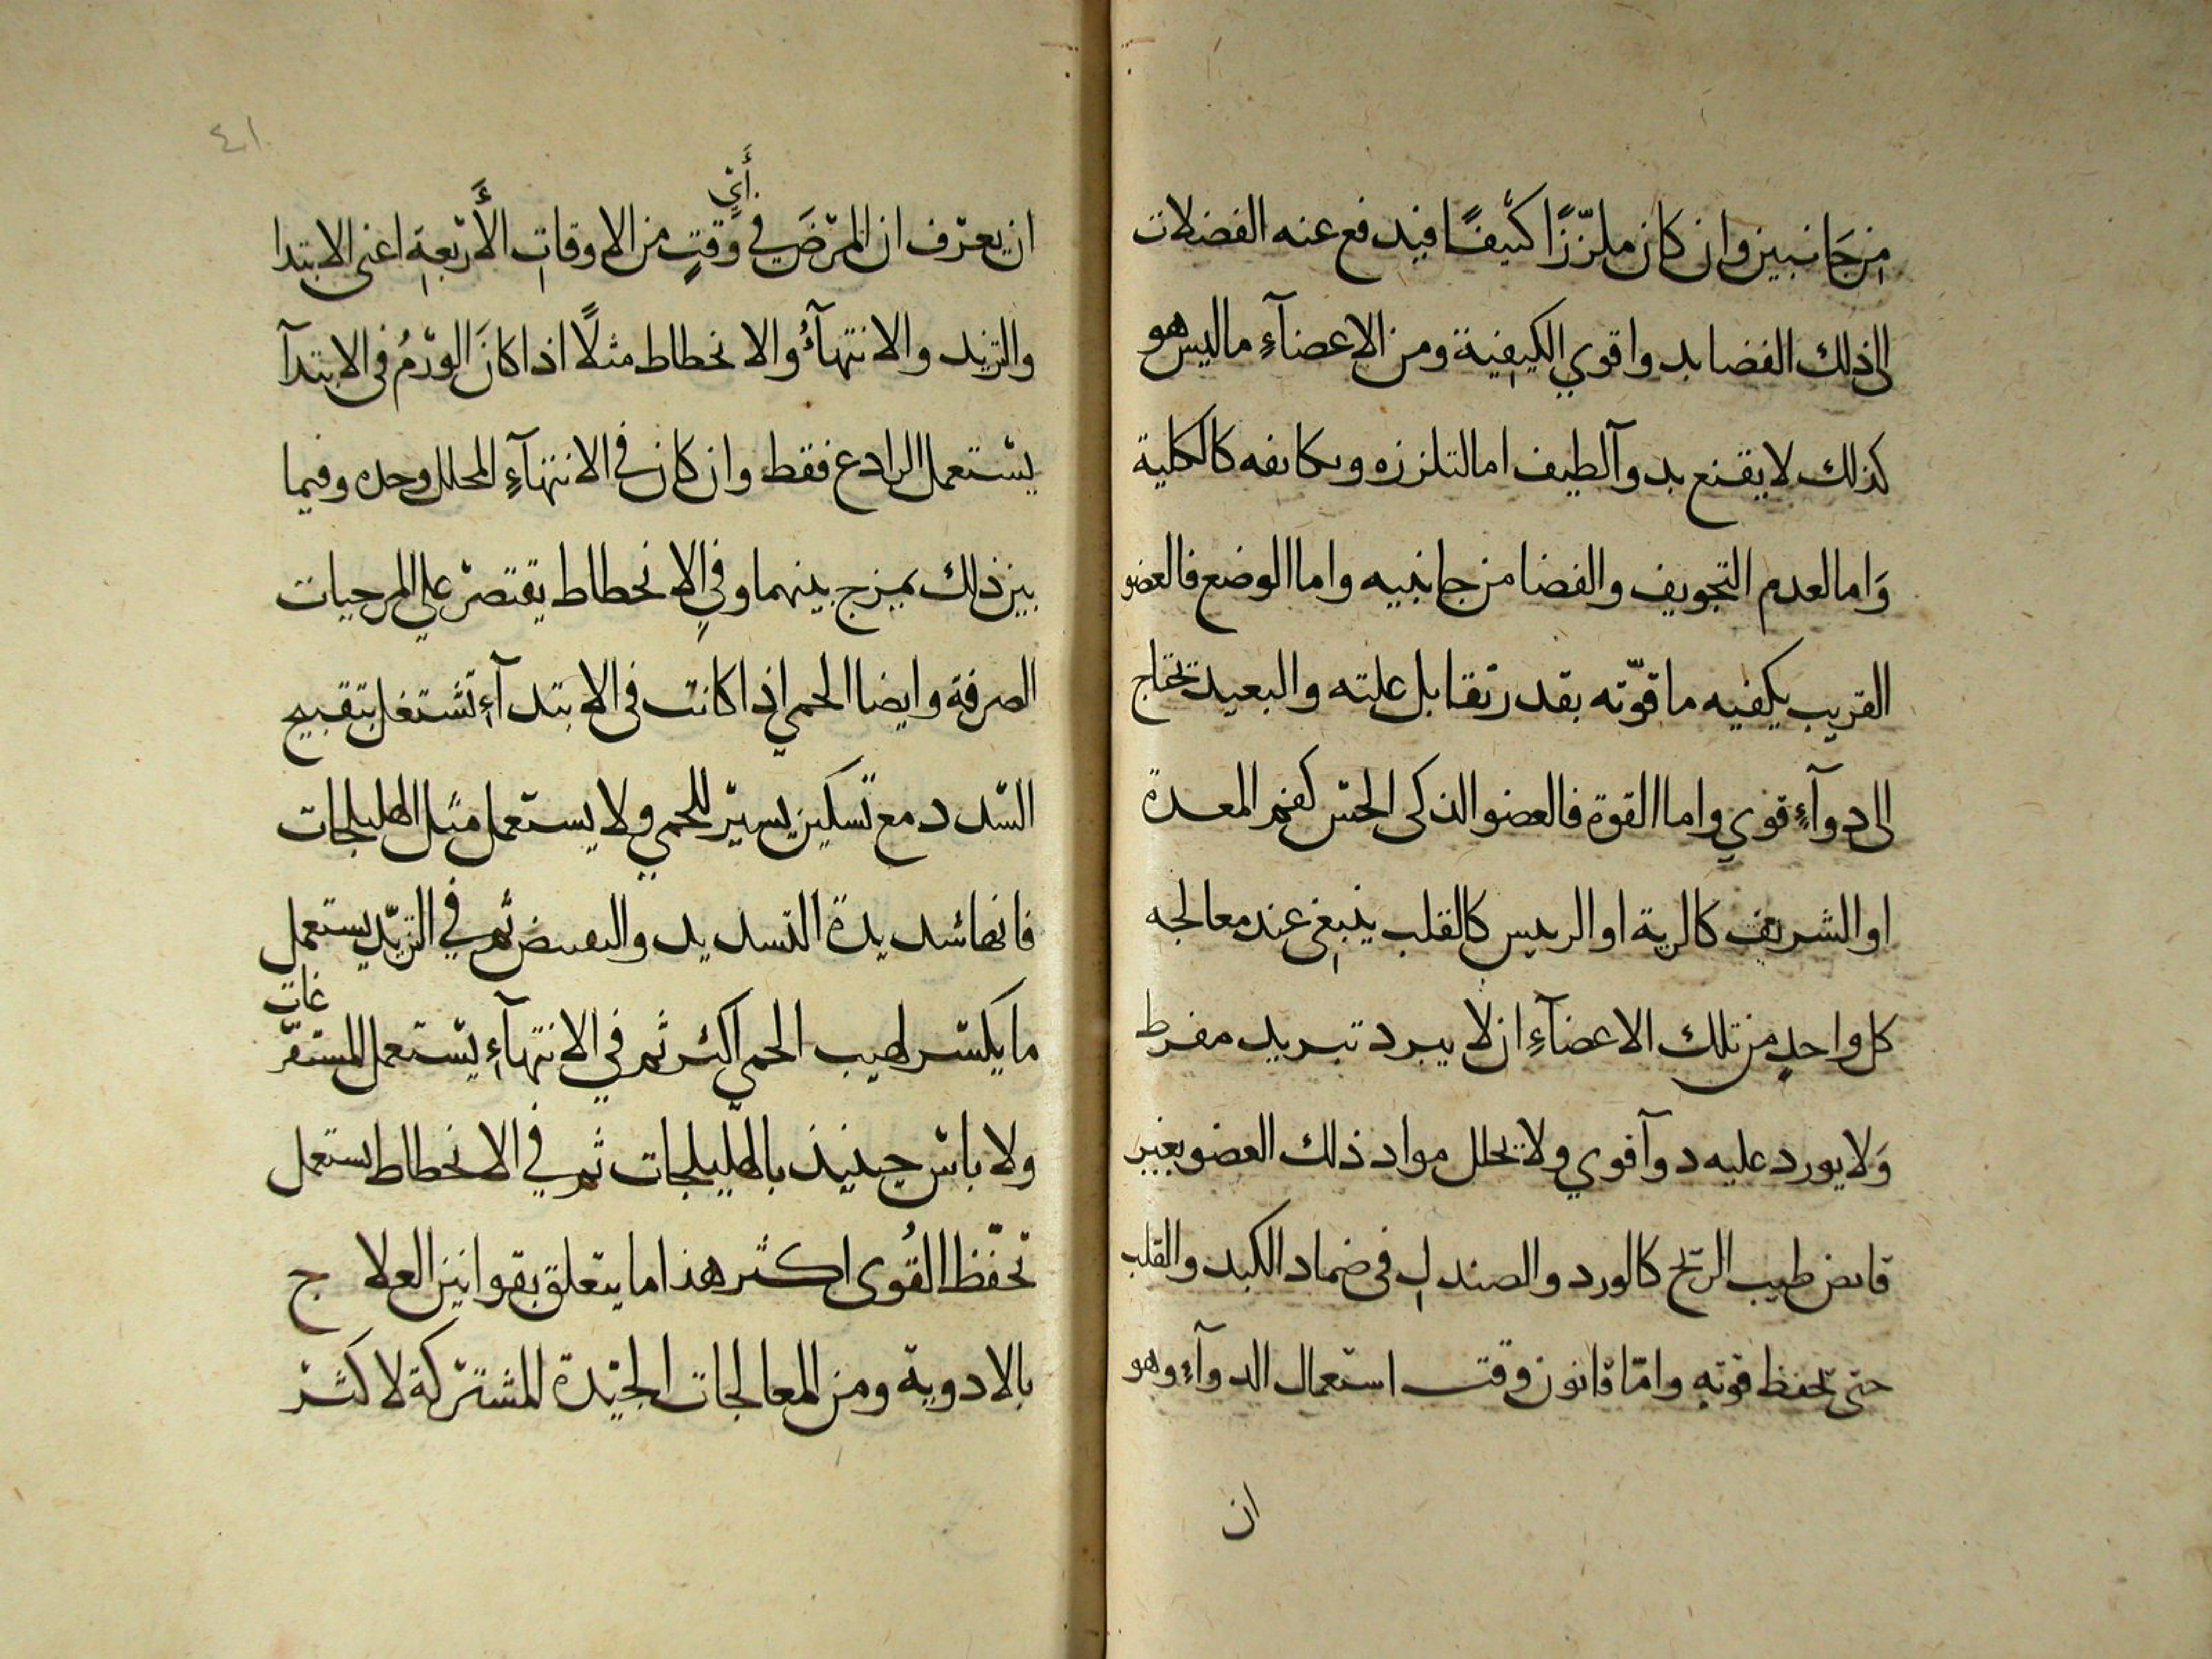 من جانبين وان كان ملززا كثيفا فيدفع عنه الفضلات
الى ذلك الفضا بدوا قوي الكيفية ومن الاعضآءِ ماليس هو
كذلك لا يقنع بدوآ لطيف اما لتلززه وىكاىفه كالكلية
وَاما لعدم التجويف والفضا من جانبيه واما الوضع فالعضو
القريب يكفيه ما قوّته بقدر تقابل علته والبعيد تحتاج
الى دوآءٍ قوي واما القوة فالعضو الذكى الحس كفم المعدة
او الشريف كالرية او الرىيس كالقلب ينبغي عند معالجه
كل واحدٍ من تلك الاعضآءِ ان لا يبرد تبريد مفرط
وَلا يورد عليه دوآ قوي ولا تحلل مواد ذلك العضو بغير
قابض طيب الريح كالورد والصندل فى ضماد الكبد والقلب
حتى تحفظ قوته وامّا قانون وقت استعمال الدوآءِ وهو
ان
٤١
أيّ
ان يعرف ان المرَضَ في وَقتٍ من الاوقاتِ الأَرْبعةِ اعنى الابتدا
والتزيد والانتهآءُ والانحطاط مثلًا اذا كانَ الورْمُ فى الابتدآ
يستعمل الرادع فقط وان كان فى الانتهآءِ المحلل وحده وفيما
بين ذلك يمزج بينهما وفي الانحطاط يقتصر علي المرخيات
الصرفة وايضا الحمي اذا كانت فى الابتدآءِ تشتغل بتقبيح
السّدد مع تسكين يسير للحمي ولا يستعمل مثل الهليلجات
فانها شديدة التسديد والىعىىض ثم في التزيّد يستعمل
ما يكسر لهيب الحمي اكثر ثم في الانتهآءِ يستعمل المستفرّ
غات
ولا باس حينيذ بالهليلجات ثم في الانحطاط يستعمل
تحفّظ القُوى اكثر هذا ما يتعلق بقوانين العلاج
بالادوية ومن المعالجات الجيّدة المشتركة لاكثر